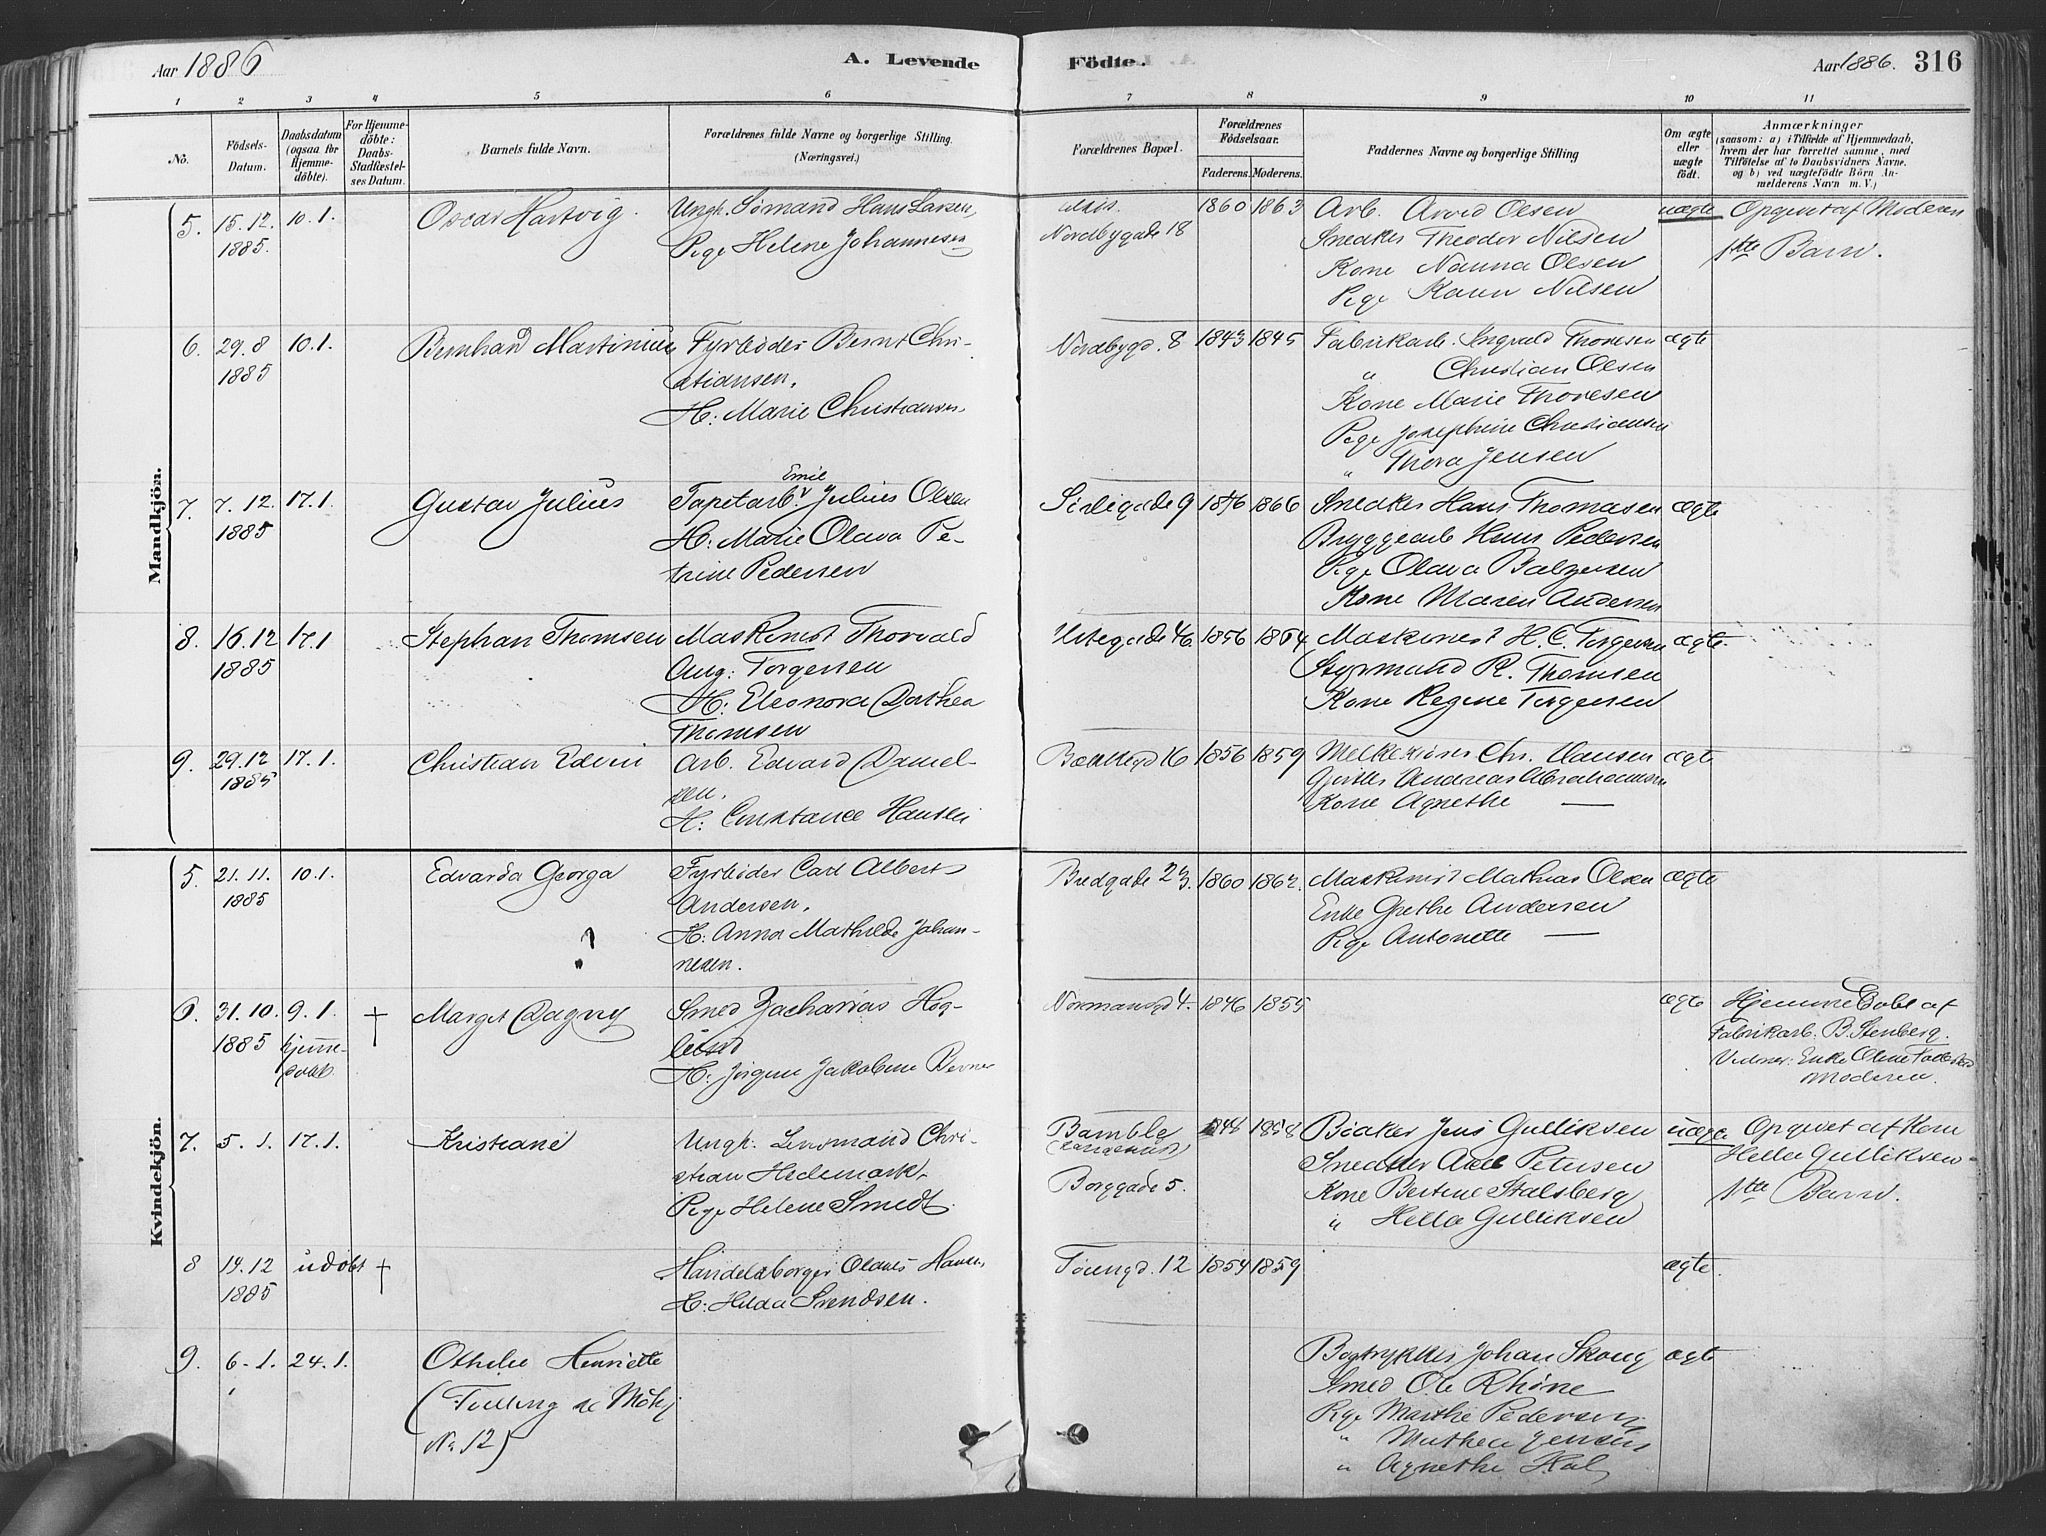 Aar 1886
A. Levende
Födte.
Aar 1886. 316
1 2 3 4 5 6 7 8 9 10 11
No.
Födsels-
Datum.
Daabsdatum
(ogsaa for
Hjemme-
döbte).
For Hjemme-
döbte:
Daabs-
Stadfæstel-
ses Datum.
Barnets fulde Navn.
Forældrenes fulde Navne og borgerlige Stilling.
(Næringsvei.)
Forældrenes Bopæl.
Forældrenes
Födselsaar.
Faderens. Moderens.
Faddernes Navne og borgerlige Stilling
Om ægte
eller
uægte
födt.
Anmærkninger
(saasom: a) i Tilfælde af Hjemmedaab,
hvem der har forrettet samme, med
Tilföielse af to Daabsvidners Navne.
og b) ved uægtefödte Börn An-
melderens Navn m. V.)
Mandkjön.
5. 15.12. 1885. 10.1. Oscar Hartvig.
Ungk. Sømand Hans Larsen
Pige Helene Johannesen
Nordbygade 18
1860 1863
Arb. Arvid Olsen
Snedker Theodor Nilsen
Kone Nanna Olsen
Pige Karen Nilsen
uægte
Opgivet af Moderen
1ste Barn.
6. 29.8 1885 10.1. Bernhard Martinius
Fyrbøder Bernt Chri-
stiansen.
H: Marie Christiansen
Nordbygd. 8 1843 1845
Fabrikarb. Ingvald Thoresen
" Christian Olsen
Kone Marie Thoresen
Pige Josephine Christiansen
" Thora Jensen
ægte
7. 7.12. 1885 17.1. Gustav Julius
Emil
Tapetarb. v Julius Olsen
H: Marie Olava Pe-
trine Pedersen
1866
Snedker Hans Thomasen
Bryggearb Hans Pedersen
Pige Olava Balzersen
Kone Maren Andersen
ægte
8. 16.12 1885 17.1 Stephan Thomsen
Maskinist Thorvald
Aug: Torgersen
H: Eleonora Dorthea
Thomsen
46. 1856 1864
Maskinist H. C. Torgersen
Styrmand R. Thomsen
Kone Regine Torgersen
ægte
9. 29.12 1885 17.1. Christian Edvin
Arb. Edvard Daniel-
sen.
H: Constance Hansen
Bækkegd 16 1856 1859
Chr. Hansen
Gjørtler Andreas Abrahamsen
Kone Agnethe —
ægte
Kvindekjön.
5. 21.11. 1885 10.1. Edvarda Georga
?
Fyrbøder Carl Albert
Andersen.
H: Anna Mathilde Johan-
nesen.
Bredgade 23. 1860 1862.
Maskinist Mathias Olsen
Enke Grethe Andersen
Pige Antonette —
ægte
6. 31.10. 1885 9.1. hjemme-
døbt † Margit Dagny
Smed Zacharias Hog-
lund
H: Jørgine Jakobine
Normansgd 4. 1846 1855
ægte
Hjemmedøbt af
Fabrikarb. B. Stenberg.
Vidner: Enke Oline
Moderen.
7. 5.1. 17.1. Kristiane
Ungk. Lensmand Chri-
stian Hedemark.
Pige Helene Smedt.
Bamble
(Langesund)
Borggade 5.
1848 1858
Bøaker Jens Gulliksen
Snedker Axel Petersen
Kone Bertine Stalsberg
" Hella Gulliksen
uægte
Opgivet af Kone
Hella Gulliksen
1ste Barn.
8 19.12 1885 udøbt †
Handelsborger Olaus Hansen
H: Hilda Svendsen.
Tøiengd. 12 1854 1859
ægte.
9. 6.1. 24.1. Othilie Henriette
(Tvilling se
No 12)
Bogtrykker Johan Skoug
Smed Ole Rhöne
Pige Marthe Pedersen
" Mathea Jensen
" Agnethe Hal
ægte